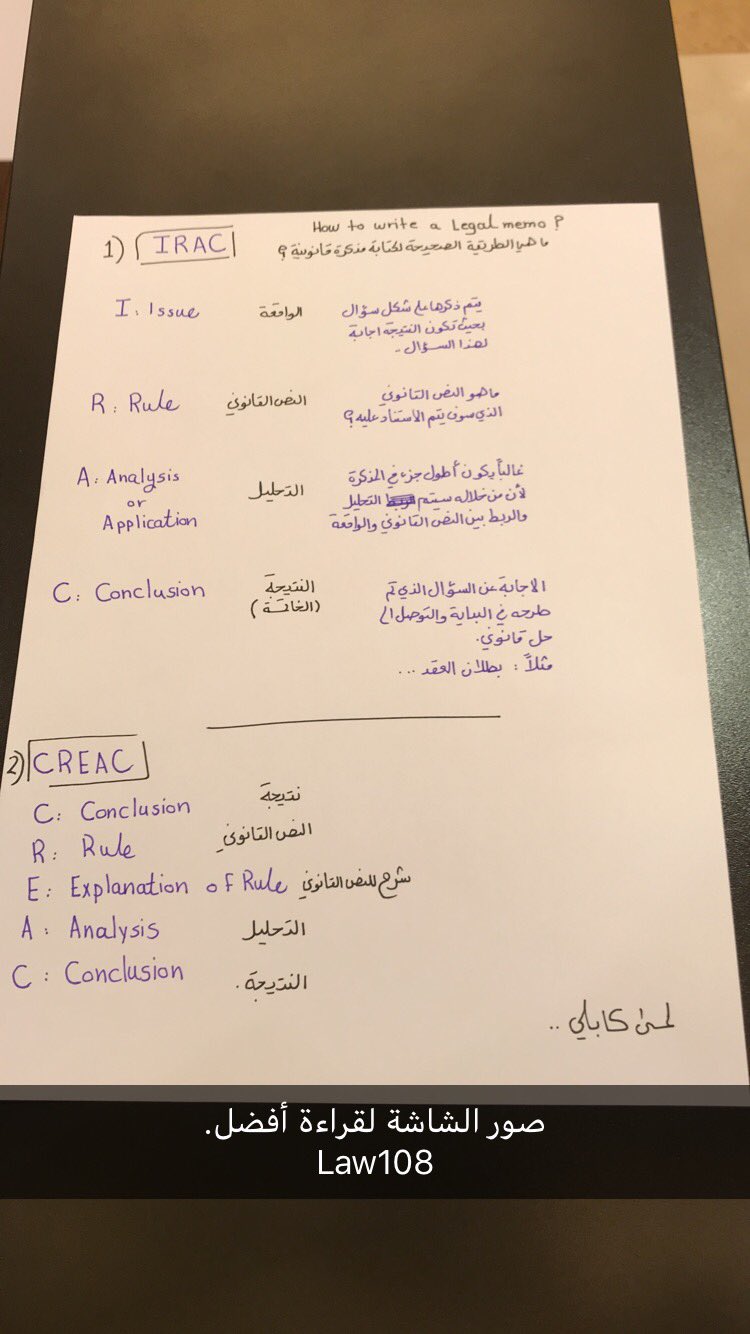 How to write a Legal memo ?
ما هي الطريقة الصحيحة لكتابة مذكرة قانونية ؟
1) IRAC
I : Issue الواقعة يتم ذكرها على شكل سؤال
بحيث تكون النتيجة اجابة
لهذا السؤال .
R : Rule النص القانوني ما هو النص القانوني
الذي سوف يتم الاستناد عليه ؟
A : Analysis التحليل غالباً يكون أطول جزء في المذكرة
or لأن من خلاله سيتم التحليل
Application والربط بين النص القانوني والواقعة
C : Conclusion النتيجة الاجابة عن السؤال الذي تم
(الخاتمة) طرحه في البداية والتوصل الى
حل قانوني .
مثلاً : بطلان العقد ...
2) CREAC
C : Conclusion نتيجة
R : Rule النص القانوني
E : Explanation of Rule شرح للنص القانوني
A : Analysis التحليل
C : Conclusion النتيجة .
كابلي ..
صور الشاشة لقراءة أفضل.
Law108